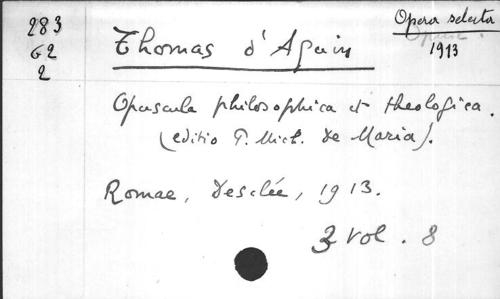 283
G2
2
Thomas d'Aquin
Opera selecta
Opusc.
1913
Opuscula philosophica et theologica.
(editio P. Mich. de Maria).
Romae, Desclée, 1913.
3 vol. 8